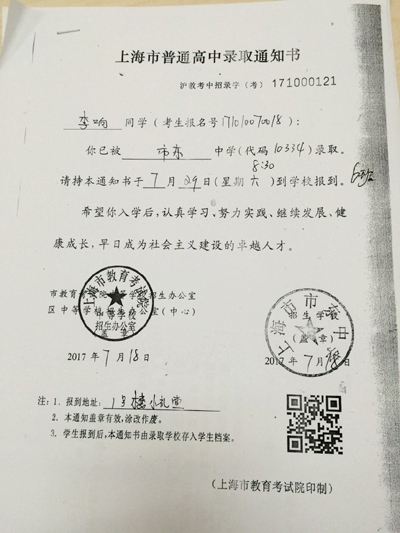 上海市普通高中录取通知书
沪教考中招录字（考）171000121
李响 同学（考生报名号171010070018）：
你已被 市东 中学（代码10334）录取。
8:30
请持本通知书于7月29日（星期六）到学校报到。
6班
希望你入学后，认真学习、努力实践、继续发展、健
康成长，早日成为社会主义建设的卓越人才。
市教育考试院中等学校招生办公室
区中等学校招生办公室（中心）
上海市教育考试院
中等学校
招生办公室
2017年7月18日
招生学校
（盖章）
上海市市东中
2017年7月
注：1．报到地址：1号楼小礼堂
2．本通知盖章有效，涂改作废。
3．学生报到后，本通知书由录取学校存入学生档案。
（上海市教育考试院印制）